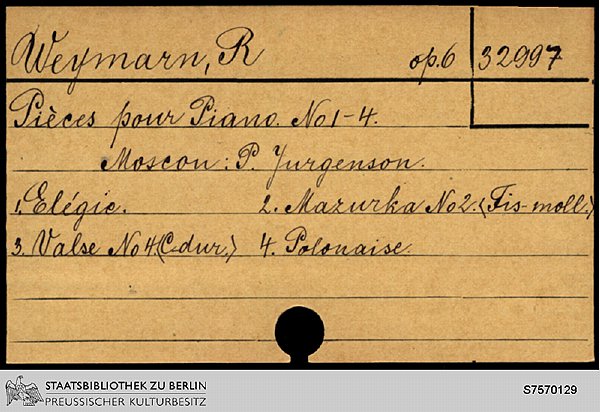 Weymarn, R op.6 32997
Pièces pour Piano. No 1-4.
Moscou: P. Jurgenson.
1. Elégie. 2. Mazurka No 2. (Fis-moll.)
3. Valse No 4. (C-dur.) 4. Polonaise.
STAATSBIBLIOTHEK ZU BERLIN
PREUSSISCHER KULTURBESITZ
S7570129